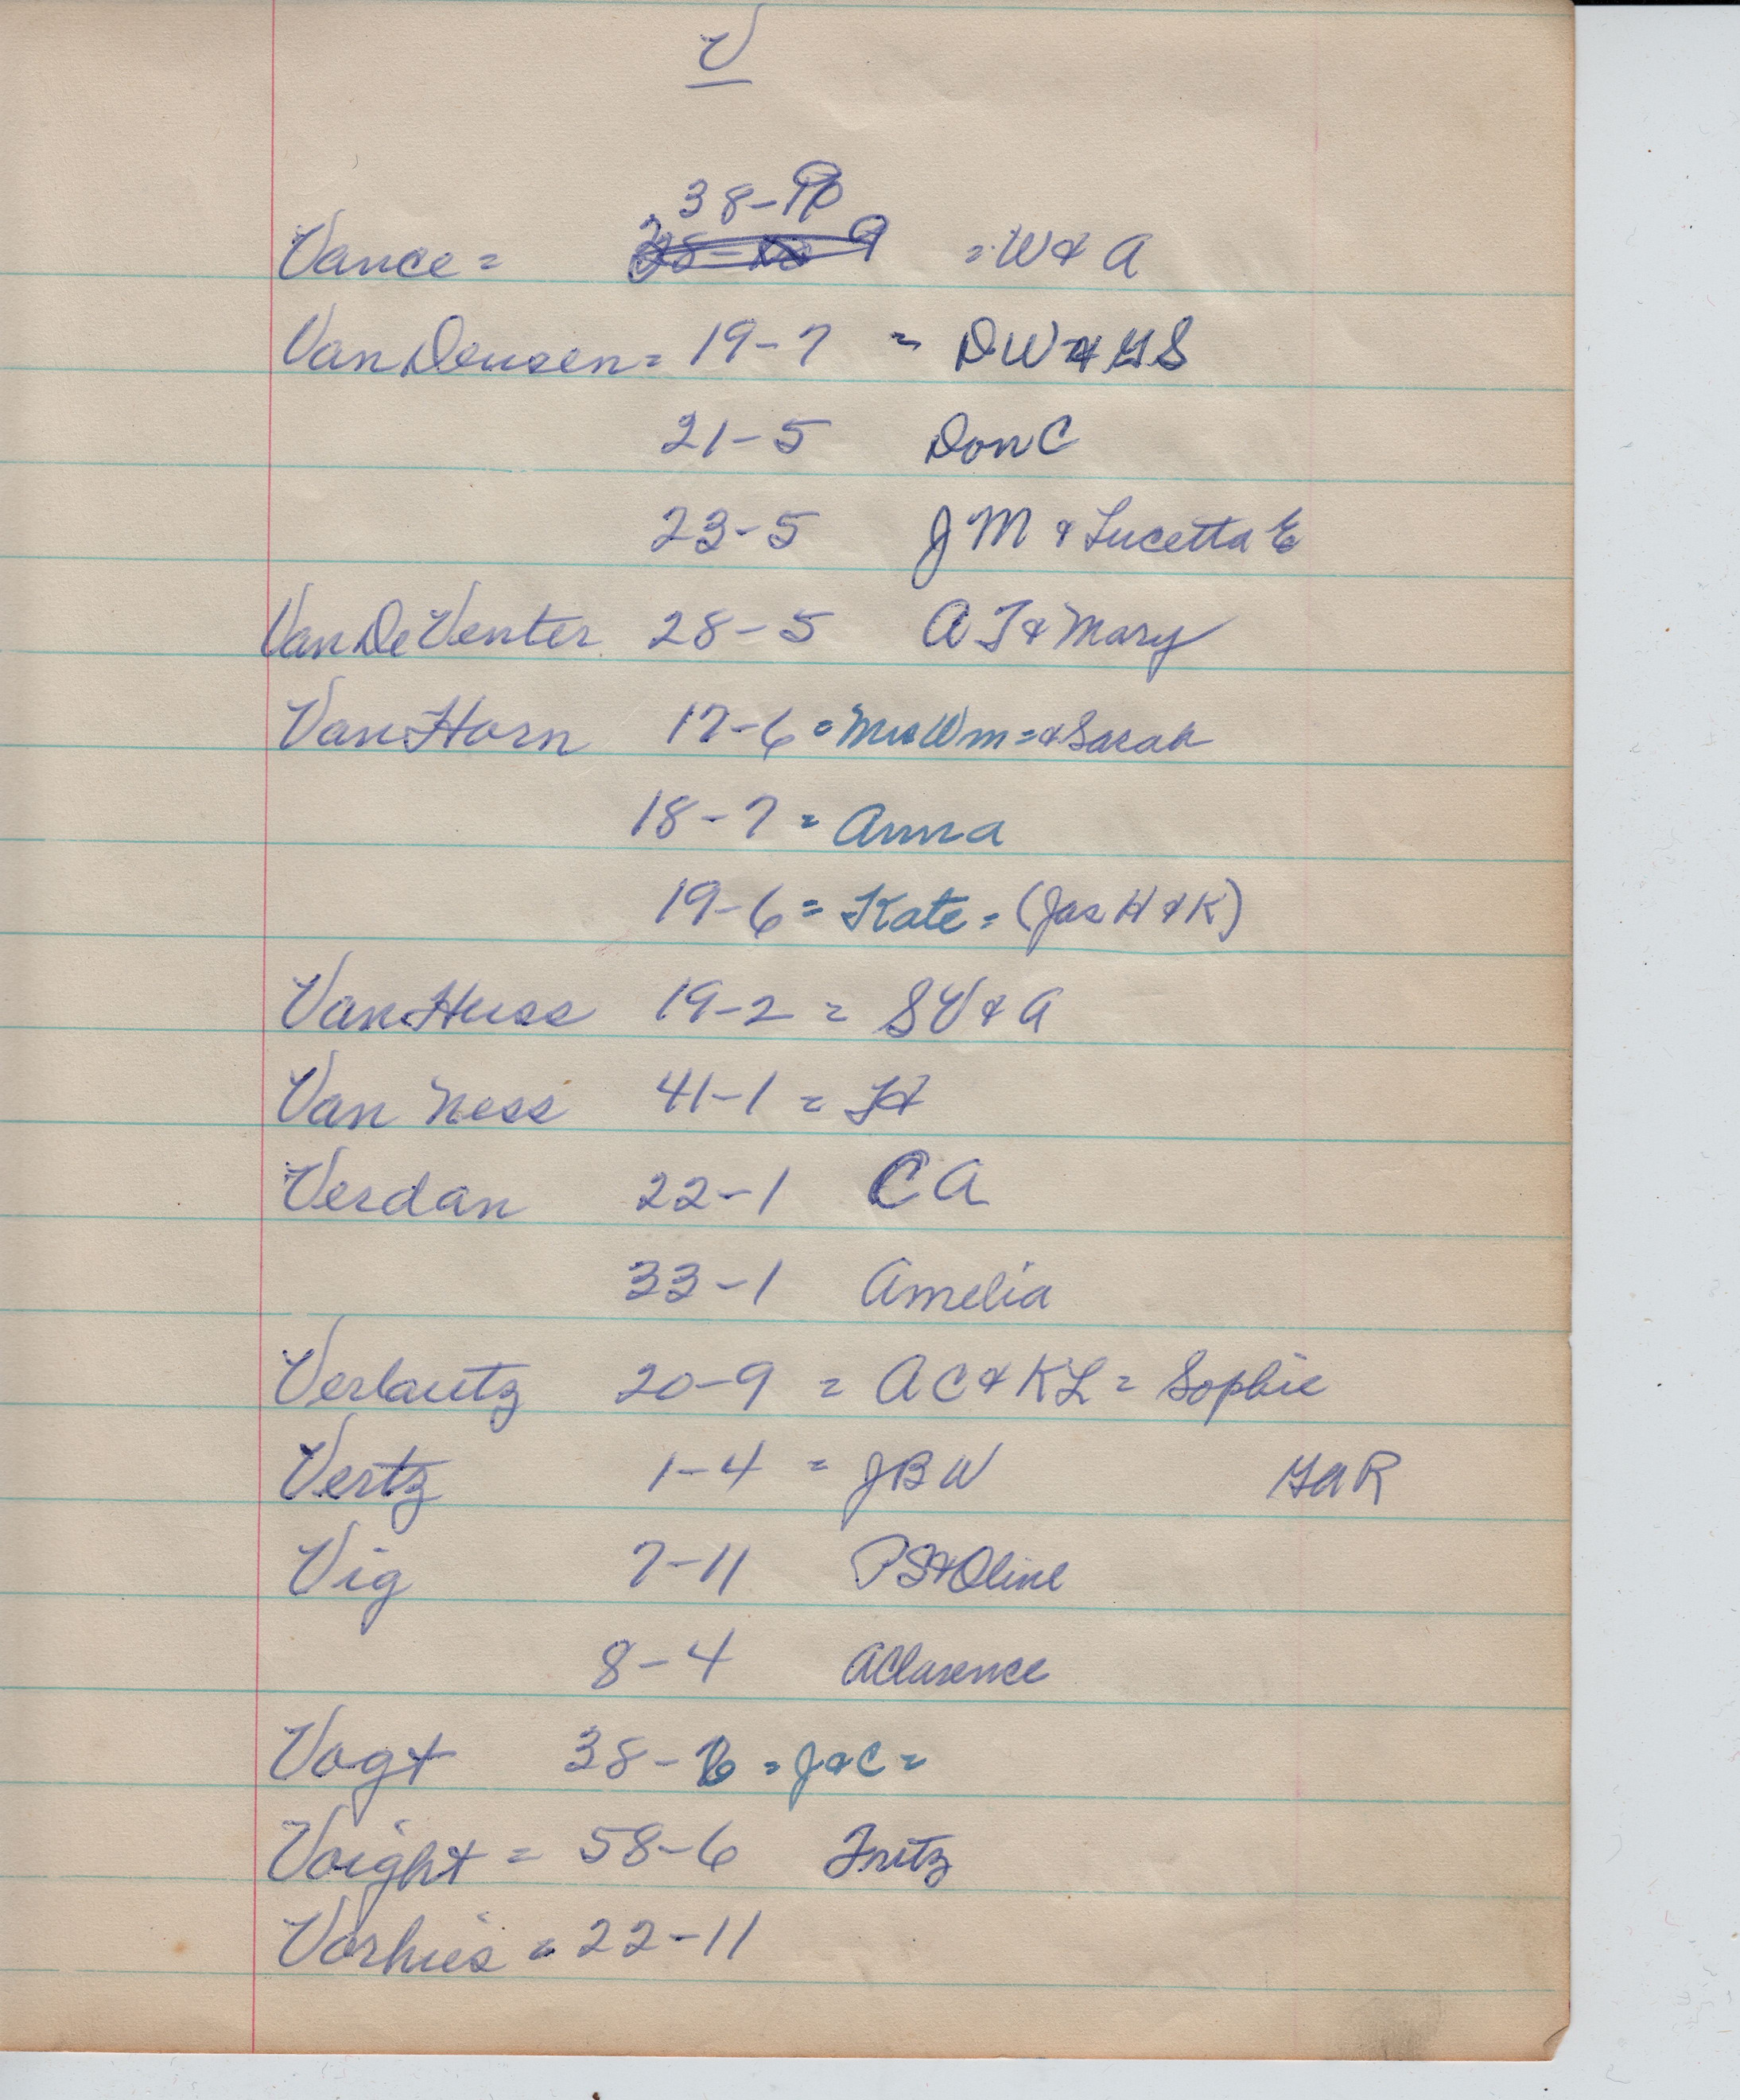 V
38-
Vance = = W & A
Van Deusen = 19-7 = DW & GS
21-5 Don C
23-5 JM & Lucetta E
Van De Venter 28-5 A J & Mary
Van Horn 17-6 = Wm = & Sarah
18-7 = Anna
19-6 = Kate = (Jas H & K)
Van Huss 19-2 = SV & A
Van Ness 41-1 =
Verdan 22-1 CA
33-1 Amelia
Verlautz 20-9 = AC & KL = Sophie
Vertz 1-4 = JBW GAR
Vig 7-11 PS & Oline
8-4 A Clarence
Vogt 38- = J & C =
Voight = 58-6 Fritz
Vorhies = 22-11